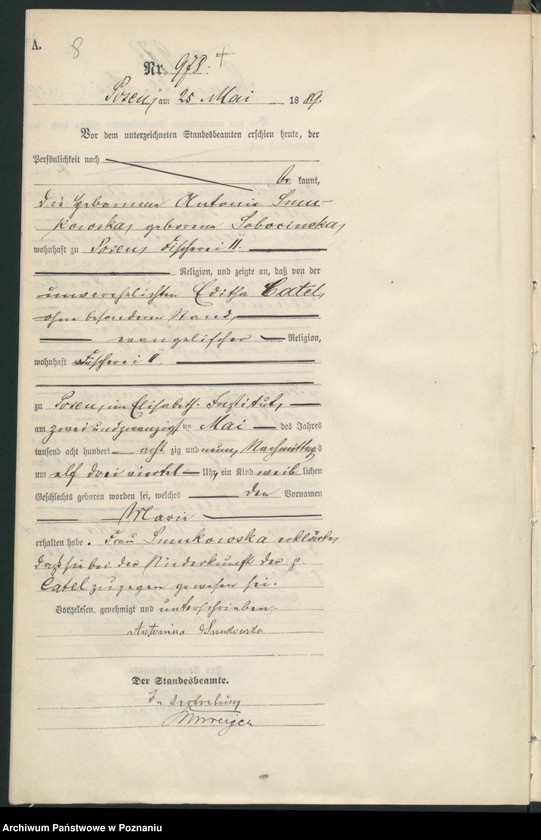 A.
8
Nr. 978.
Posen, am 25 Mai 1889.
Vor dem unterzeichneten Standesbeamten erschien heute, der
Persönlichkeit nach
be kannt,
die Hebamme Antonie
kowska, geborene Sobocinska,
wohnhaft zu Posen, Fischerei II.
Religion, und zeigte an, daß von der
unverehelichten Editha Catel,
ohne besonderen Stand,
evangelischer Religion,
wohnhaft Fischerei
zu Posen, im Elisabeth-Institut,
am zweiundzwanzigsten Mai des Jahres
tausend acht hundert acht zig und neun, Nachmittags
um elf drei viertel Uhr, ein Kind weib lichen
Geschlechts geboren worden sei, welches den Vornamen
Marie
erhalten habe. Frau Smukowska erklärte,
daß sie bei der Niederkunft der p.
Catel zugegen gewesen sei.
Vorgelesen, genehmigt und unterschrieben
Antonina
Der Standesbeamte.
In Vertretung
Archiwum Państwowe w Poznaniu